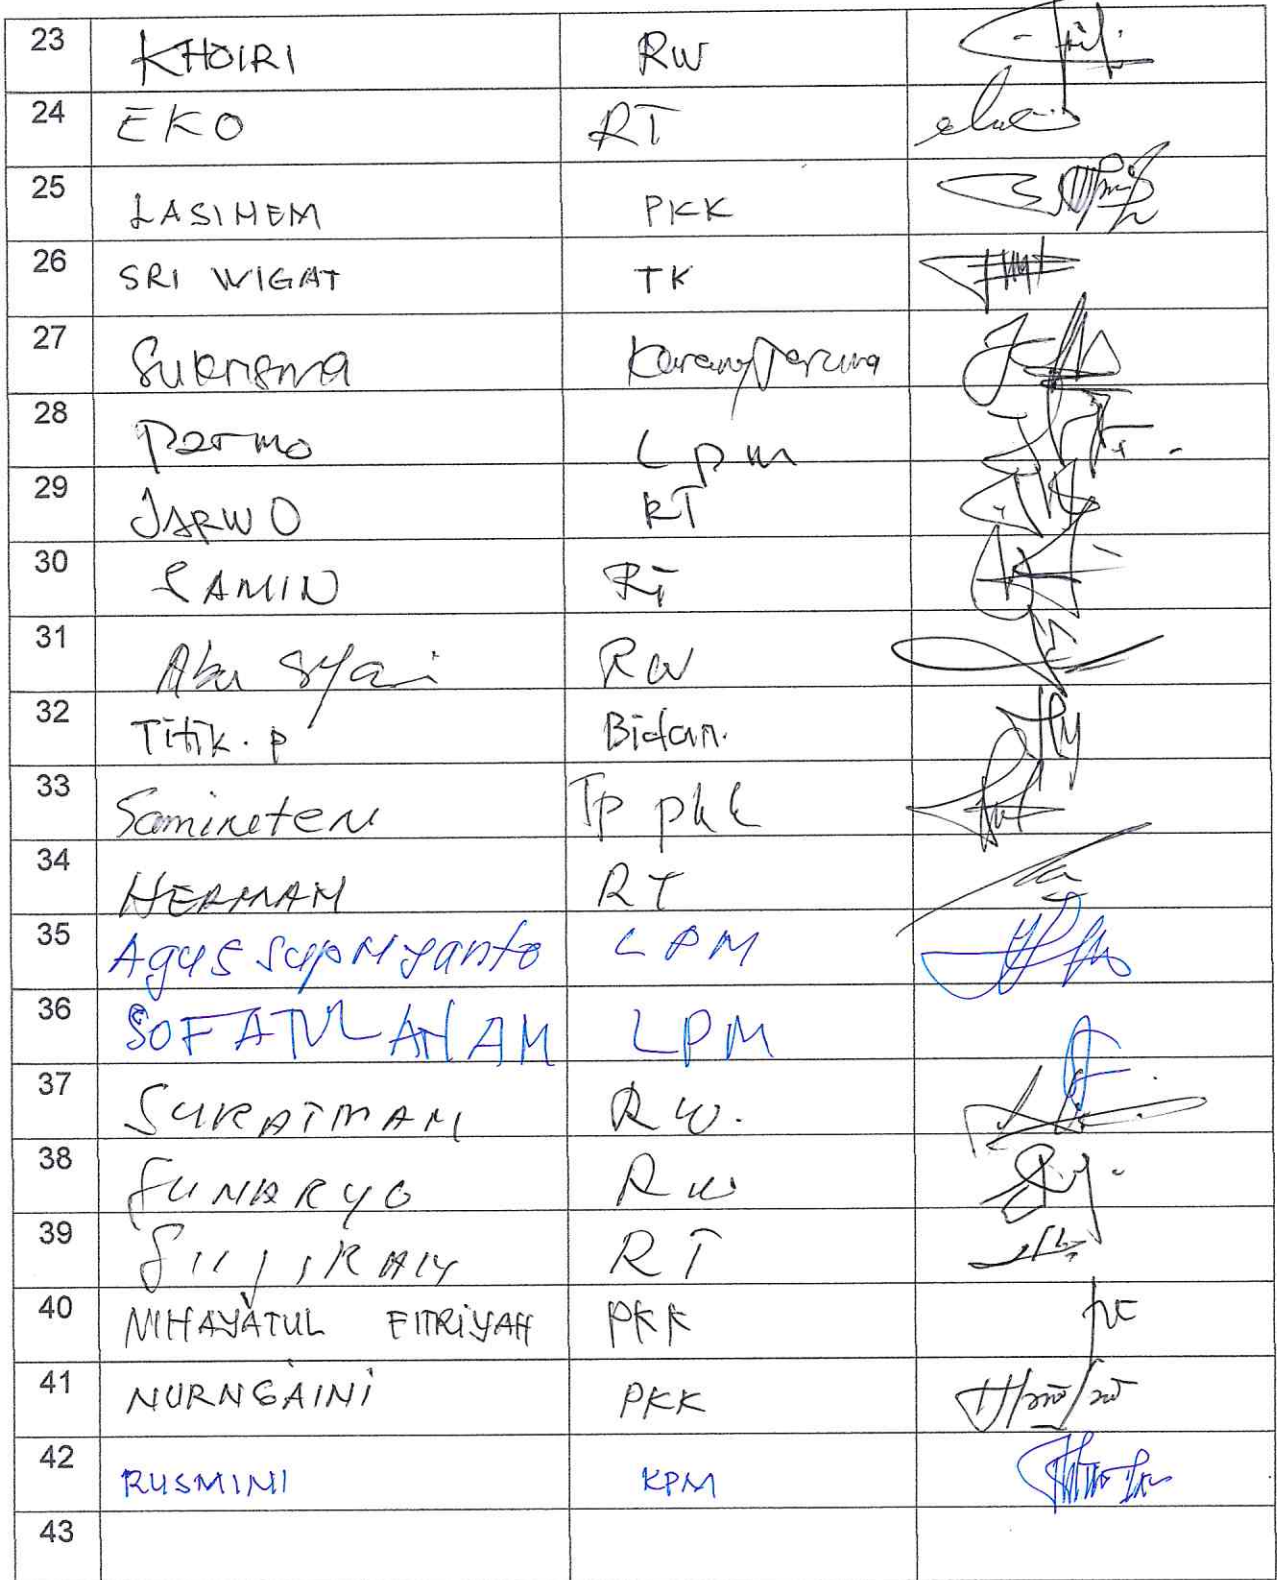 23 KHOIRI RW
24 EKO RT
25 LASINEM PKK
26 SRI WIGAT TK
27 Sukrisma Karang Taruna
28 Parmo Lpm
29 JARWO RT
30 SAMIN RT
31 Abu Syai RW
32 Titik. P Bidan.
33 Tp pkk
34 HERMAN RT
35 Agus Supriyanto LPM
36 SOFATUL ANAM LPM
37 SURATMAN RW.
38 SUNARYO RW
39 RT
40 NIHAYATUL FITRIYAH PKK
41 NURNGAINI PKK
42 RUSMINI KPM
43